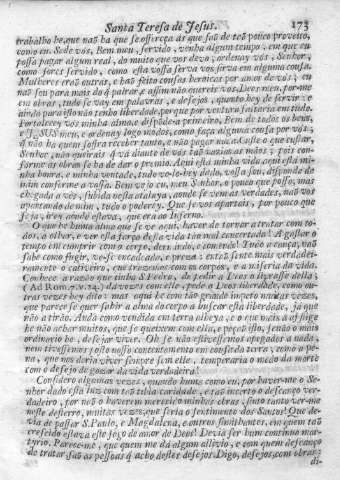 Santa Teresa de Jesus. 173
trabalho he, que naõ ha que se offereça ás que saõ de taõ pouco proveito,
como eu. Sede vós, Bem meu, servido, venha algum tempo, em que eu
possa pagar algum real, do muito que vos devo; ordenay vós, Senhor,
como fores servido, como esta vossa serva vos sirva em alguma cousa.
Mulheres eraõ outras, e haõ feito cousas heroicas por amor de vós; eu
naõ sou para mais do que palrar, e assim naõ quereis vós, Deos meu, por-me
em obras, tudo se vay em palavras, e desejos, quanto hey de servir: e
ainda para isso naõ tenho liberdade, porque por ventura faltára em tudo.
Fortalecey vós minha alma, e disponde-a primeiro, Bem de todos os bens,
e JESUS meu, e ordenay logo modos, como faça alguma cousa por vós;
que naõ ha quem soffra receber tanto, e naõ pagar nada: custe o que custar,
Senhor, naõ queirais que vá diante de vós taõ vasias as mãos, pois con-
forme as obras se ha de dar o premio. Aqui está minha vida, aqui está mi-
nha honra, e minha vontade, tudo vo-lo hey dado, vossa sou, disponde de
mim conforme a vossa. Bem vejo eu, meu Senhor, o pouco que posso; mas
chegada a vós, subida nesta atalaya, aonde se vem as verdades, naõ vos
apartando de mim, tudo o poderey. Que se vos apartais, por pouco que
seja, irey aonde estava, que era ao Inferno.
O que he huma alma que se ve aqui, haver de tornar a tratar com to-
dos, a olhar, e ver esta farça desta vida taõ mal concertada! A gastar o
tempo em cumprir com o corpo, dormindo, e comendo! Tudo a cança, naõ
sabe como fugir, ve-se encadeada, e preza: entaõ sente mais verdadei-
ramente o cativeiro, que trazemos com os corpos, e a miseria da vida.
Conhece a razaõ que tinha S. Paulo, de pedir a Deos o livrasse della;
(Ad Rom. 7. v. 24.) dá vozes com elle, pede a Deos liberdade, como ou-
tras vezes hey dito: mas aqui he com taõ grande impeto muitas vezes,
que parece se quer sahir a alma do corpo a buscar esta liberdade, já que
naõ a tiraõ. Anda como vendida em terra alheya, e o que mais a afflige
he naõ achar muitos, que se queixem com ella, e peçaõ isto, senaõ o mais
ordinario he, desejar viver. Oh se naõ estivessemos apegados a nada,
nem tivessemos posto nosso contentamento em cousa da terra, como a pe-
na, que nos daria viver sempre sem elle, temperaria o medo da morte
com o desejo de gozar da vida verdadeira!
Considero algumas vezes, quando huma como eu, por haver-me o Se-
nhor dado esta luz com taõ tibia caridade, e taõ incerto o descanço ver-
dadeiro, por naõ o haverem merecido minhas obras, sinto tanto ver-me
neste desterro, muitas vezes, que seria o sentimento dos Santos? Que de-
via de passar S. Paulo, e Magdalena, e outros similhantes, em quem taõ
crescido estava este fogo de amor de Deos? Devia ser hum continuo mar-
tyrio. Parece-me, que quem me dá algum allivio, e com quem descanço
de tratar, saõ as pessoas que acho destes desejos. Digo, desejos, com obras:
di-